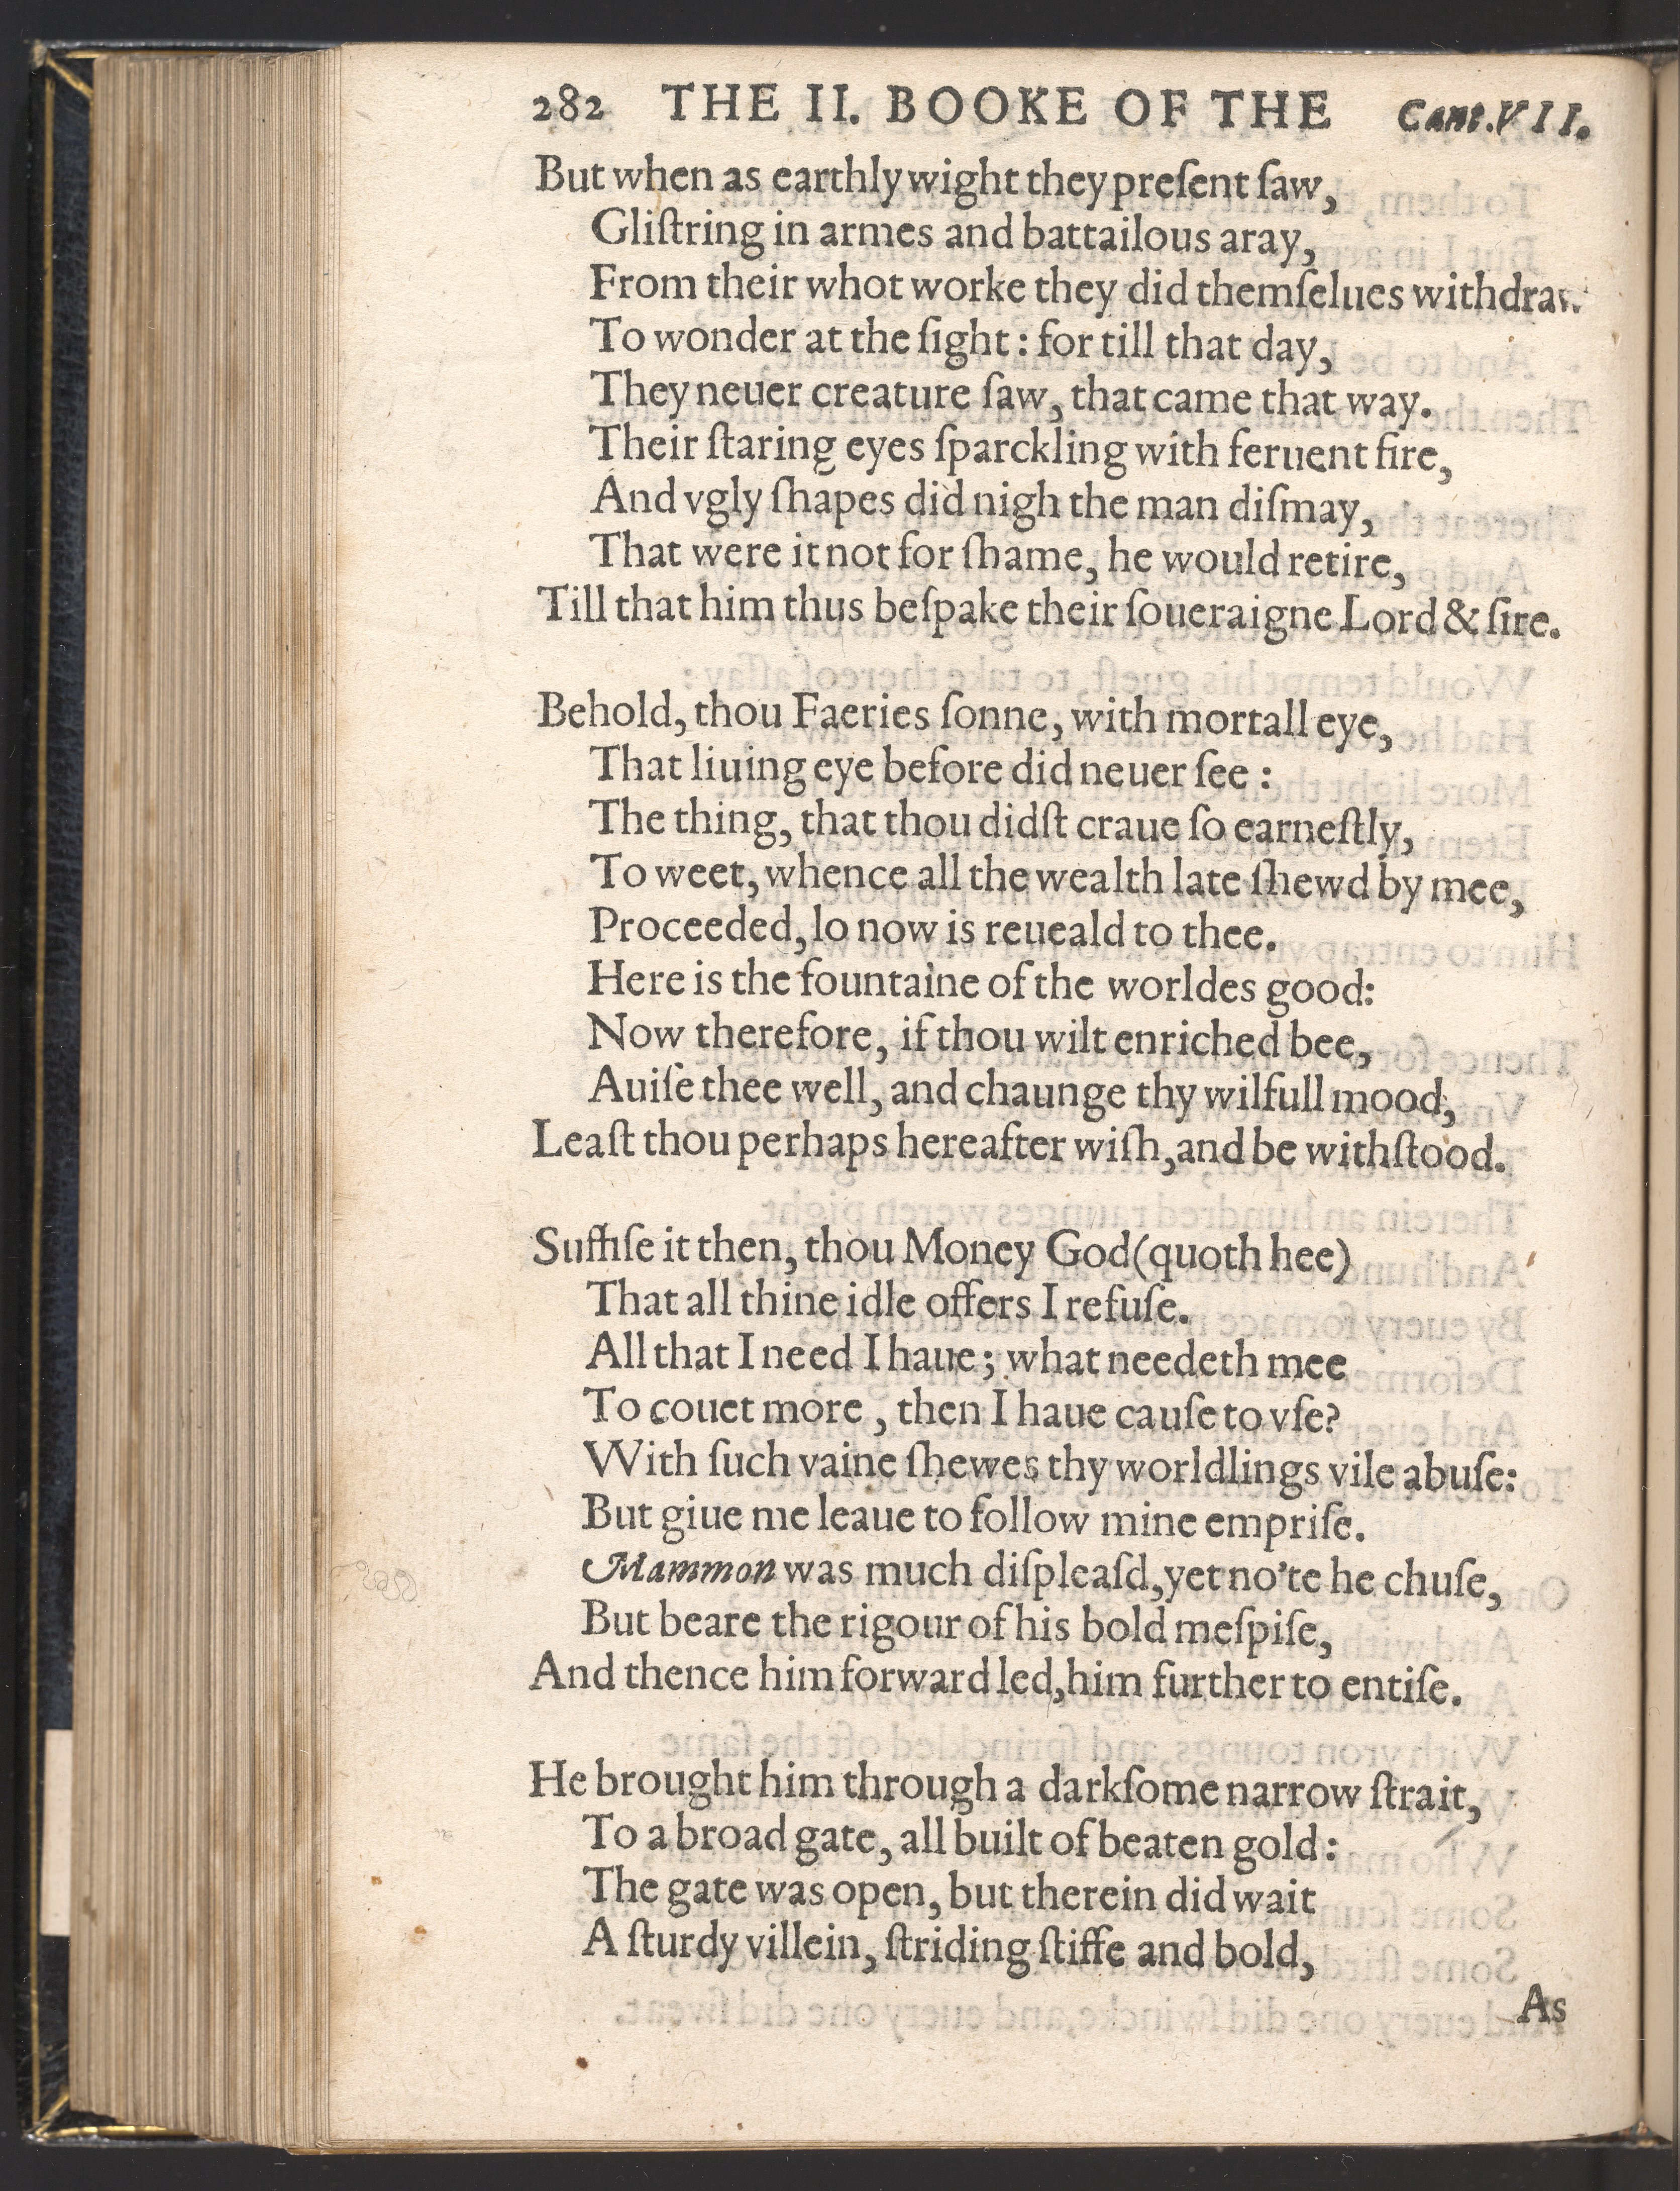 282 THE II. BOOKE OF THE Cant. VII.
But when as earthly wight they preſent ſaw,
Gliſtring in armes and battailous aray,
From their whot worke they did themſelues withdraw
To wonder at the ſight: for till that day,
They neuer creature ſaw, that came that way.
Their ſtaring eyes ſparckling with feruent fire,
And vgly ſhapes did nigh the man diſmay,
That were it not for ſhame, he would retire,
Till that him thus beſpake their ſoueraigne Lord & ſire.
Behold, thou Faeries ſonne, with mortall eye,
That liuing eye before did neuer ſee:
The thing, that thou didſt craue ſo earneſtly,
To weet, whence all the wealth late ſhewd by mee,
Proceeded, lo now is reueald to thee.
Here is the fountaine of the worldes good:
Now therefore, if thou wilt enriched bee,
Auiſe thee well, and chaunge thy wilfull mood,
Leaſt thou perhaps hereafter wiſh, and be withſtood.
Suffiſe it then, thou Money God (quoth hee)
That all thine idle offers I refuſe.
All that I need I haue; what needeth mee
To couet more, then I haue cauſe to vſe?
With ſuch vaine ſhewes thy worldlings vile abuſe:
But giue me leaue to follow mine empriſe.
Mammon was much diſpleaſd, yet no'te he chuſe,
But beare the rigour of his bold meſpiſe,
And thence him forward led, him further to entiſe.
He brought him through a darkſome narrow ſtrait,
To a broad gate, all built of beaten gold:
The gate was open, but therein did wait
A ſturdy villein, ſtriding ſtiffe and bold,
As